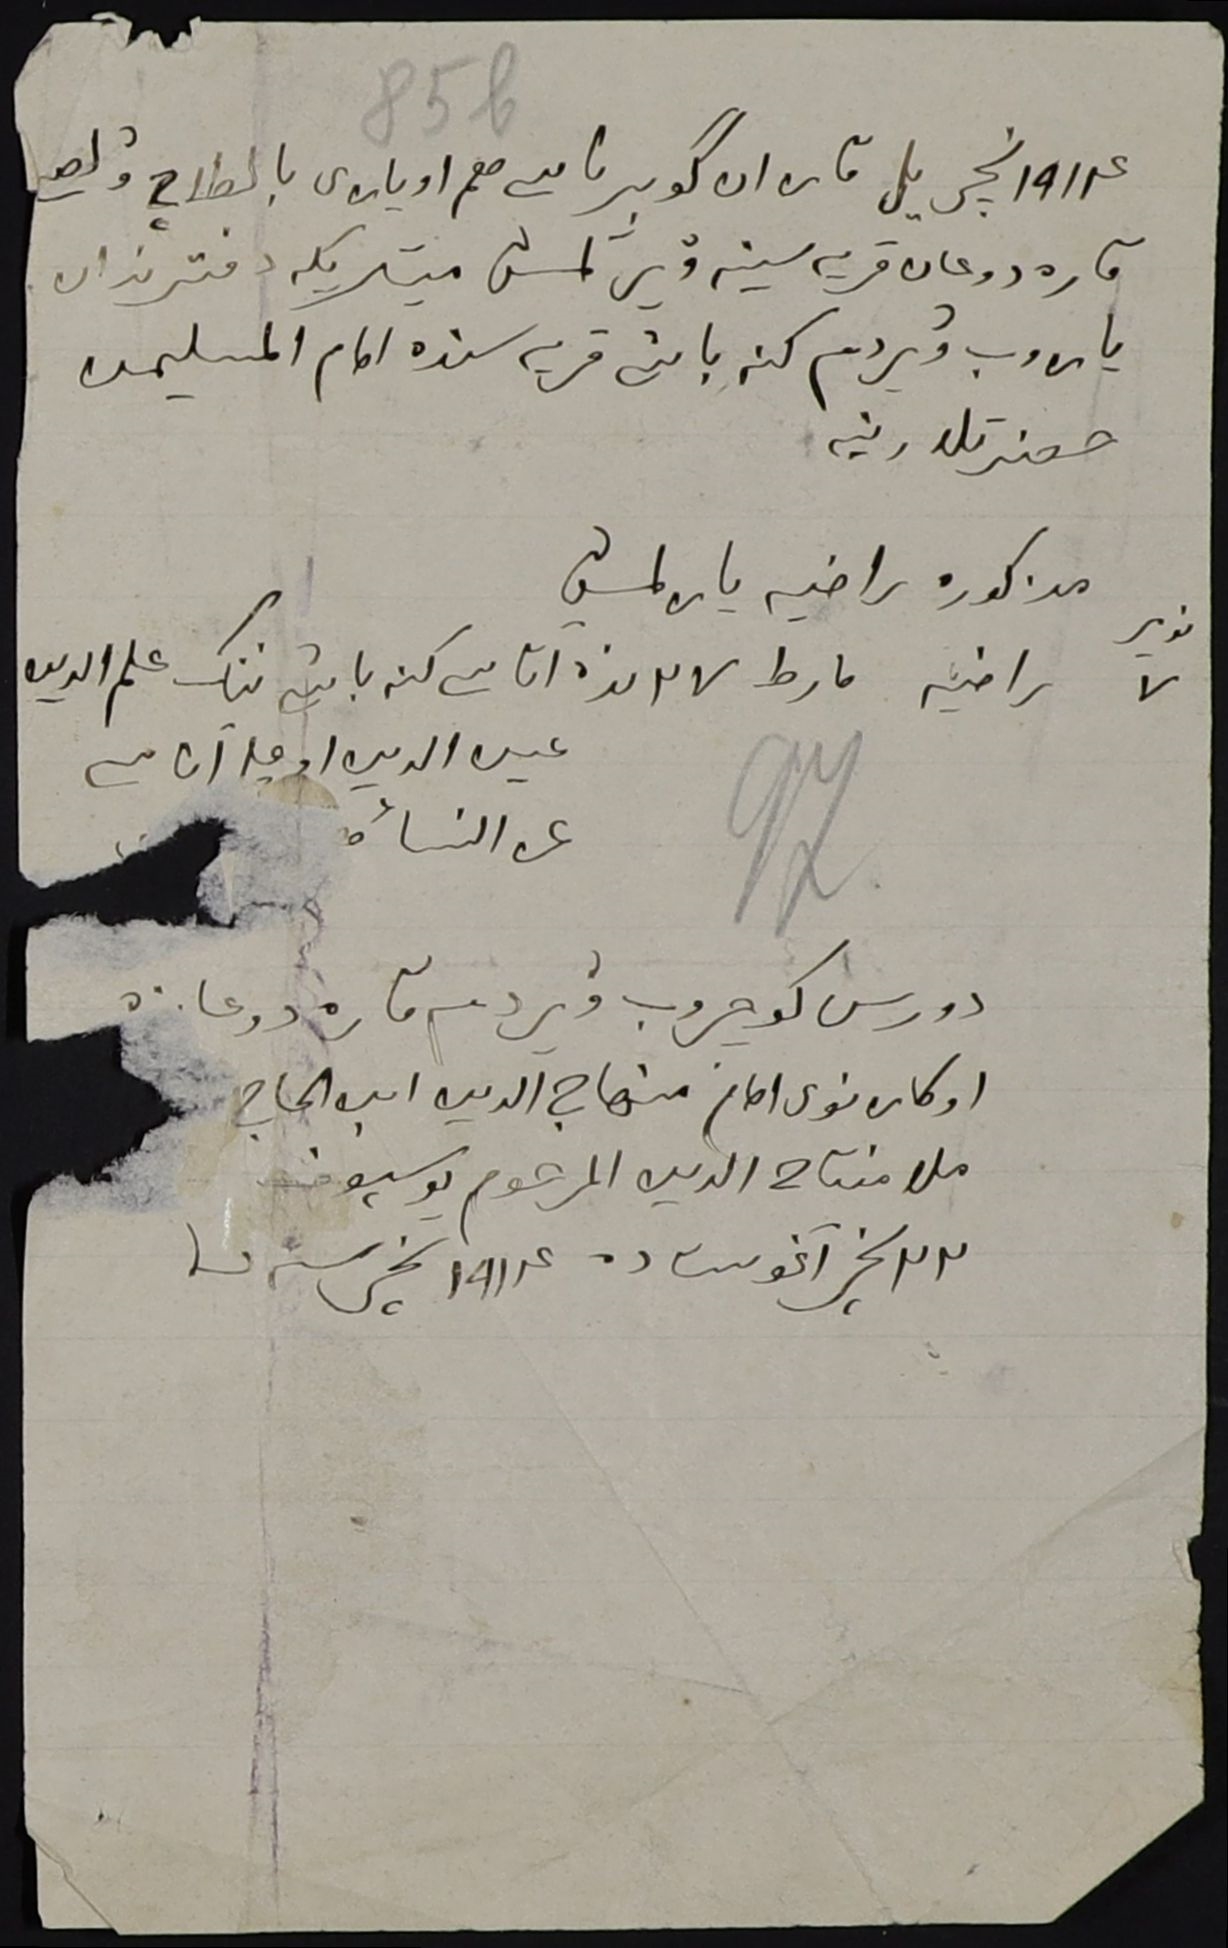 856
۱۹۱۴نچی یل قازان گوبیرناسی هم اویازی بالطاچ ولصی
قاره دوعان قریه سینه ویرلمش میتریکه دفترندان
یازوب ویردم کنه باشی قریه سنده امام المسلیمین
حضرتلارینه
مذکوره راضیه یازلمش
نومیر
۷ راضیه مارط ۲۷ نده آتاسی کنه باشی ننک علم الدین
عین الدین اوغلا آناسی
النسائه
97
دورس کوچروب ویردم قاره دوعانده
اوکازنوی امام منهاج الدین ابن الحاج
ملا مفتاح الدین المرحوم یوسیوف
۲۲نچی آغوستده ۱۹۱۴نچی سنه ده